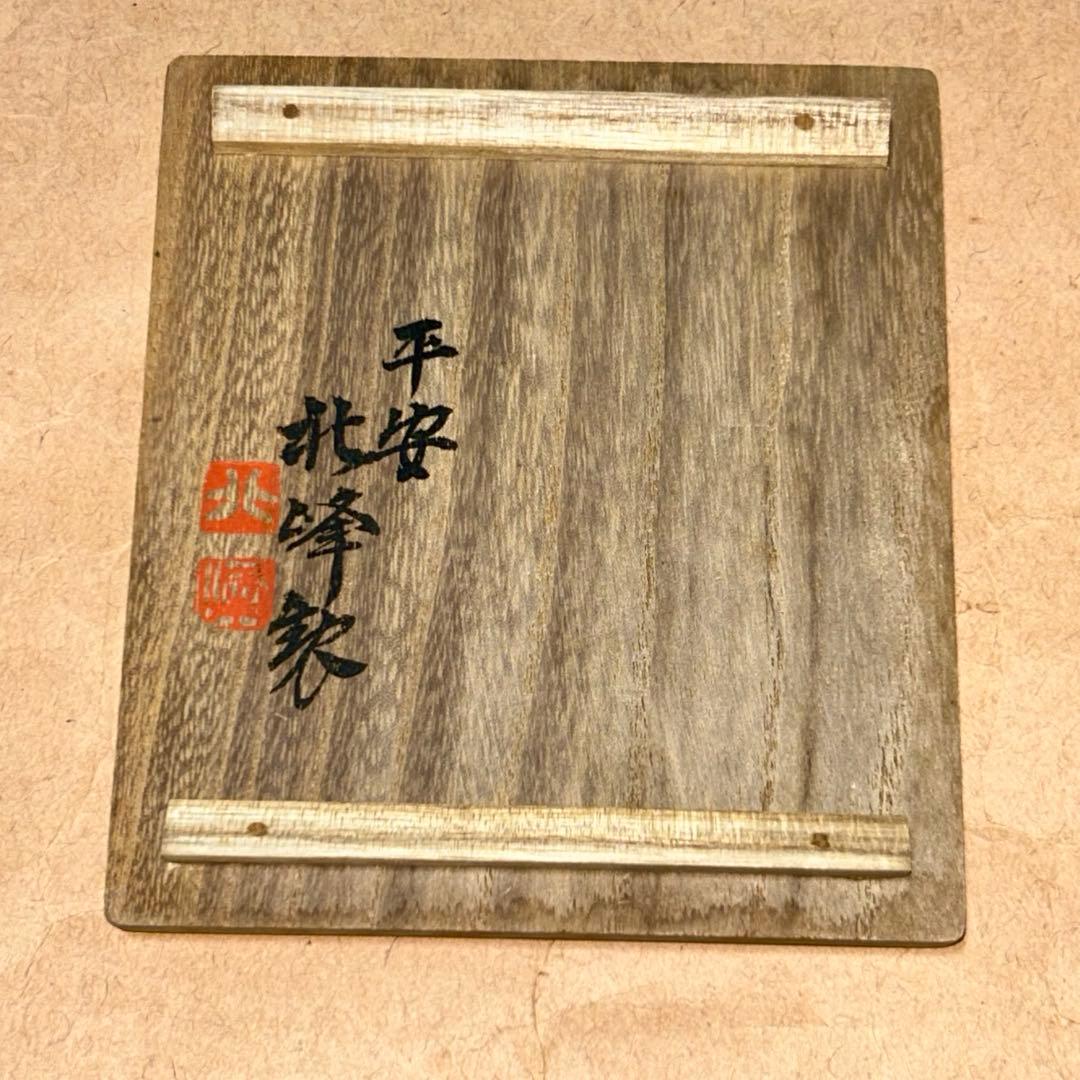 平安
北峰製
北